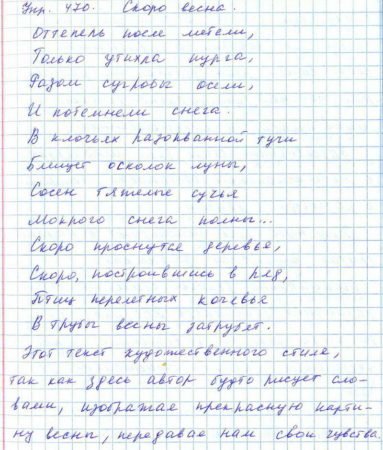 Упр. 470. Скоро весна.
Оттепель после метели,
Только утихла пурга,
Разом сугробы осели,
И потемнели снега.
В клочьях разорванной тучи
Блещет осколок луны,
Сосен тяжелые сучья
Мокрого снега полны...
Скоро проснутся деревья,
Скоро, построившись в ряд,
Птиц перелетных кочевья
В трубы весны затрубят.
Этот текст художественного стиля,
так как здесь автор будто рисует сло-
вами, изображая прекрасную карти-
ну весны, передавая нам свои чувства.